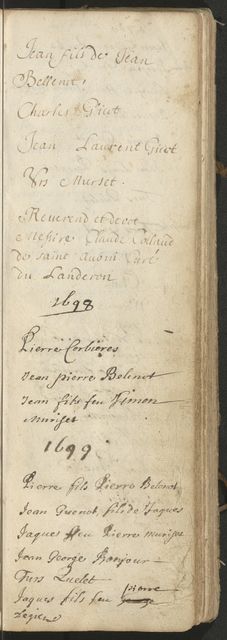 Jean fils de Jean
Bellenot
Charles Guot
Jean Laurent Guot
Urs Murset.
Reverend et devot
Messire Claude
de saint Curé
du Landeron
1698
Pierre Corbieres
Jean pierre Belenot
Jean fils feu Simon
Muriset
1699
Pierre fils Pierre Belenot
Jean fils de Jaques
Jaques feu Pierre muriset
Jean George Bonjour
Turs Quelet
Jaques fils feu pierre